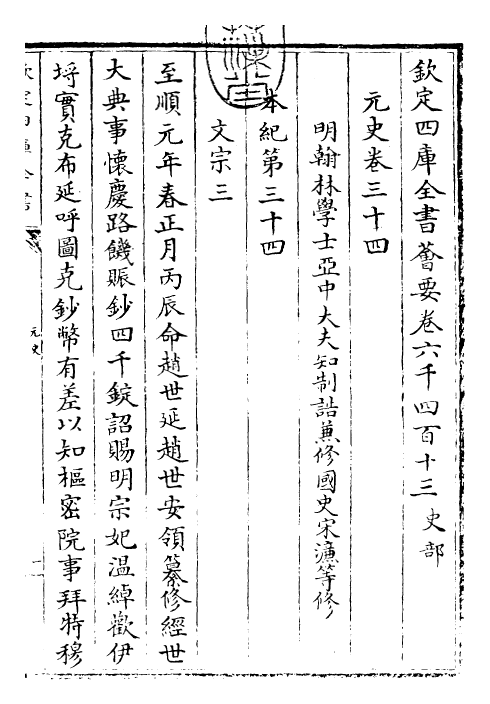 欽定四庫全書薈要卷六千四百十三 史部
元史卷三十四
明翰林學士亞中大夫知制誥兼修國史宋濂等修
本紀第三十四
文宗三
至順元年春正月丙辰命趙世延趙世安領纂修經世
大典事懷慶路饑賑鈔四千錠詔賜明宗妃溫綽歡伊
埒實克布延呼圖克鈔幣有差以知樞密院事拜特穆
元史